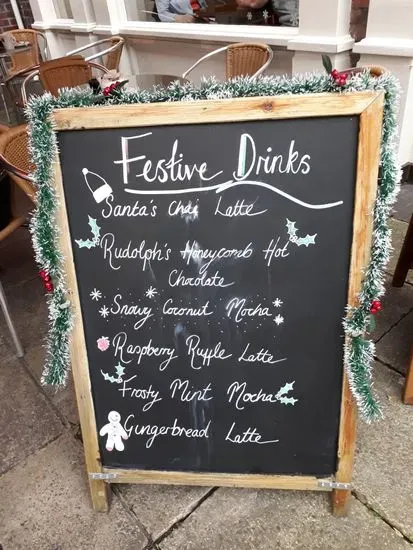 Festive Drinks
Santa's Chai Latte
Rudolph's Honeycomb Hot
Chocolate
Snowy Coconut Mocha
Raspberry Ruffle Latte
Frosty Mint Mocha
Gingerbread Latte